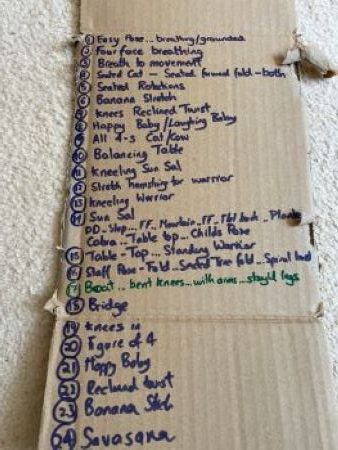 1 Easy Pose... breathing/grounded
2 Four face breathing
3 Breath to movement
4 Seated Cat - Seated forward fold - both
5 Seated Rotations
6 Banana Stretch
7 Knees Reclined Twist
8 Happy Baby/Laughing Baby
9 All 4-s Cat/Cow
10 Balancing Table
11 Kneeling Sun Sal
12 Stretch hamstring for warrior
13 Kneeling Warrior
14 Sun Sal
DD-Step...FF..Mountain..FF..Flat back..Plank
Cobra..Table top..Childs Pose
15 Table-Top... Standing Warrior
16 Staff Pose-Fold..Seated Tree fold..Spinal
17 Boat.. bent knees...with arms... legs
18 Bridge
19 Knees in
20 Figure of 4
21 Happy Baby
22 Reclined twist
23 Banana
24 Savasana